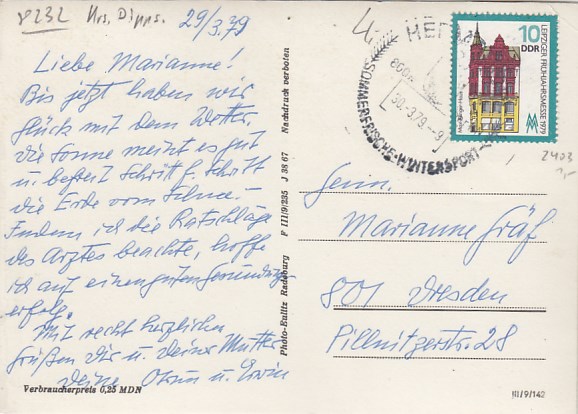 8232 Hrs. Dipps.
29/3.79
Liebe Marianne!
Bis jetzt haben wir
Glück mit dem Wetter
die Sonne meint es gut
u. befreit Schritt f. Schritt
die Erde vom Schnee.
Indem ich die Ratschläge
des Arztes beachte, hoffe
ich auf einen guten Genesungs-
erfolg.
Mit recht herzlichen
Grüßen Dir u. Deiner Mutter
Deine u. Erwin
Verbraucherpreis 0,25 MDN
Photo-Eulitz Radeburg F III/9/235 J 38 67 Nachdruck verboten
SOMMERFRISCHE · WINTERSPORT
30.-3.79.-9
10
DDR
LEIPZIGER FRÜHJAHRSMESSE 1979
2403
1,-
Fam.
Marianne Gräf
801 Dresden
Pillnitzerstr. 28
III/9/142